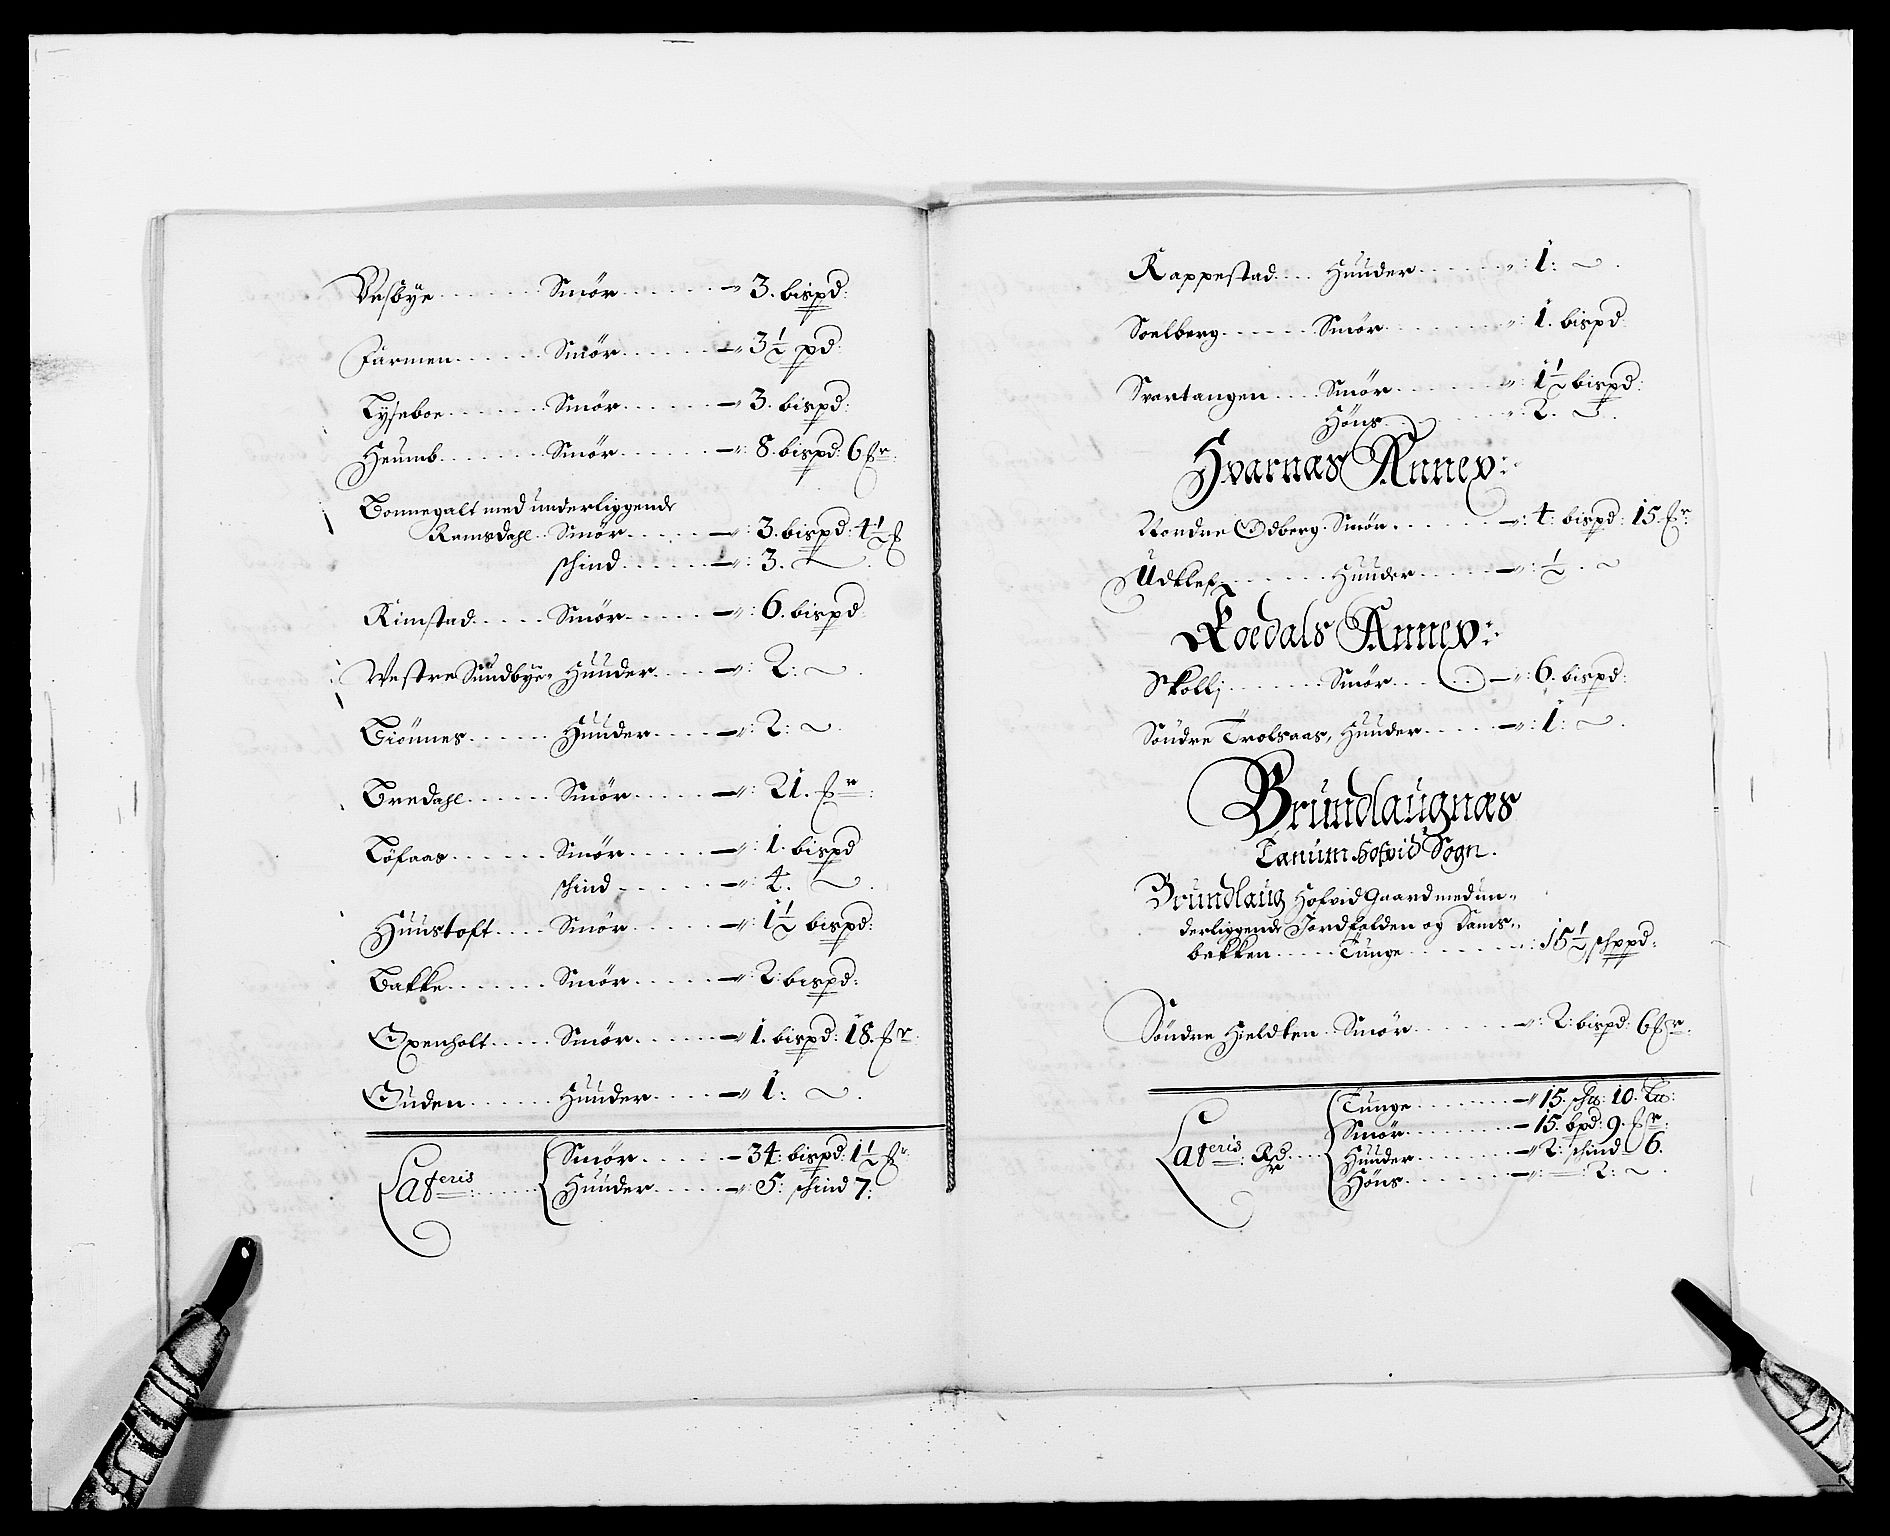 Vesbÿe . . . . . . Smör . . . . . . — 3. bispd:
Farmen . . . . . . Smör . . . . . . — 3½ pd:
Tÿseboe . . . . . . Smör . . . . . . — 3. bispd:
Heumb . . . . . . Smör . . . . . . — 8. bispd: 6 ℔r:
Bonnegalt med underliggende
Ramsdahl . . Smör . . . . . — 3. bispd: 4½ ℔
schind . . . . . . — 3. ~
Rimstad . . . . . Smör . . . . . — 6. bispd
Westre Sundbÿe, Huuder . . . . — 2: ~
Biönnes . . . . . . Huuder . . . . — 2: ~
Bredahl . . . . . . Smör . . . . . — 21. ℔r:
Löfaas . . . . . . Smör . . . . . — 1. bispd
schind . . . . . — 4. ~
Huustoft . . . . Smör . . . . . — 1½ bispd:
Bakke . . . . . . . Smör . . . . . — 2: bispd:
Oxenholt . . . . . Smör . . . . . — 1. bispd: 18. ℔r
Guden . . . . . . Huuder . . . . — 1: ~
Lateris . . . . . Smör . . . . . — 34: bispd: 1½ ℔r
Huuder . . . . . — 5: schind 7:
Rappestad . . . . Huuder . . . . . . : 1: ~
Soelberg . . . . . . Smör . . . . . . : 1. bispd
Svartangen . . . . Smör . . . . . . : 1½ bispd:
Höns . . . . . . : 2. ~
Hvarnæs Annex:
Nordre Odberg. Smör . . . . . . — 4: bispd: 15. ℔r
Udklef . . . . . . Huuder . . . . . — : ½ . ~
Koedals Annex:
Skolli . . . . . . . Smör . . . . . — : 6. bispd:
Söndre Trolsaas, Huuder . . . . . — : 1: ~
Brundlaugnæs
Tanum Hofvid Sogn.
Brundlaug Hofvid Gaard med un-
derliggende Jordfalden og Dams-
bakken . . . . . Tunge . . . . . . . : 15½ schppd:
Söndre Hieldten. Smör . . . . . . — : 2: bispd: 6 ℔r.
Lateris . . . . Tunge . . . . . . . — 15: 10:
Smör . . . . . . . — 15. bpd: 9. ℔r:
Huuder . . . . . . — 2: schind 6.
Höns . . . . . . . — : 2: ~